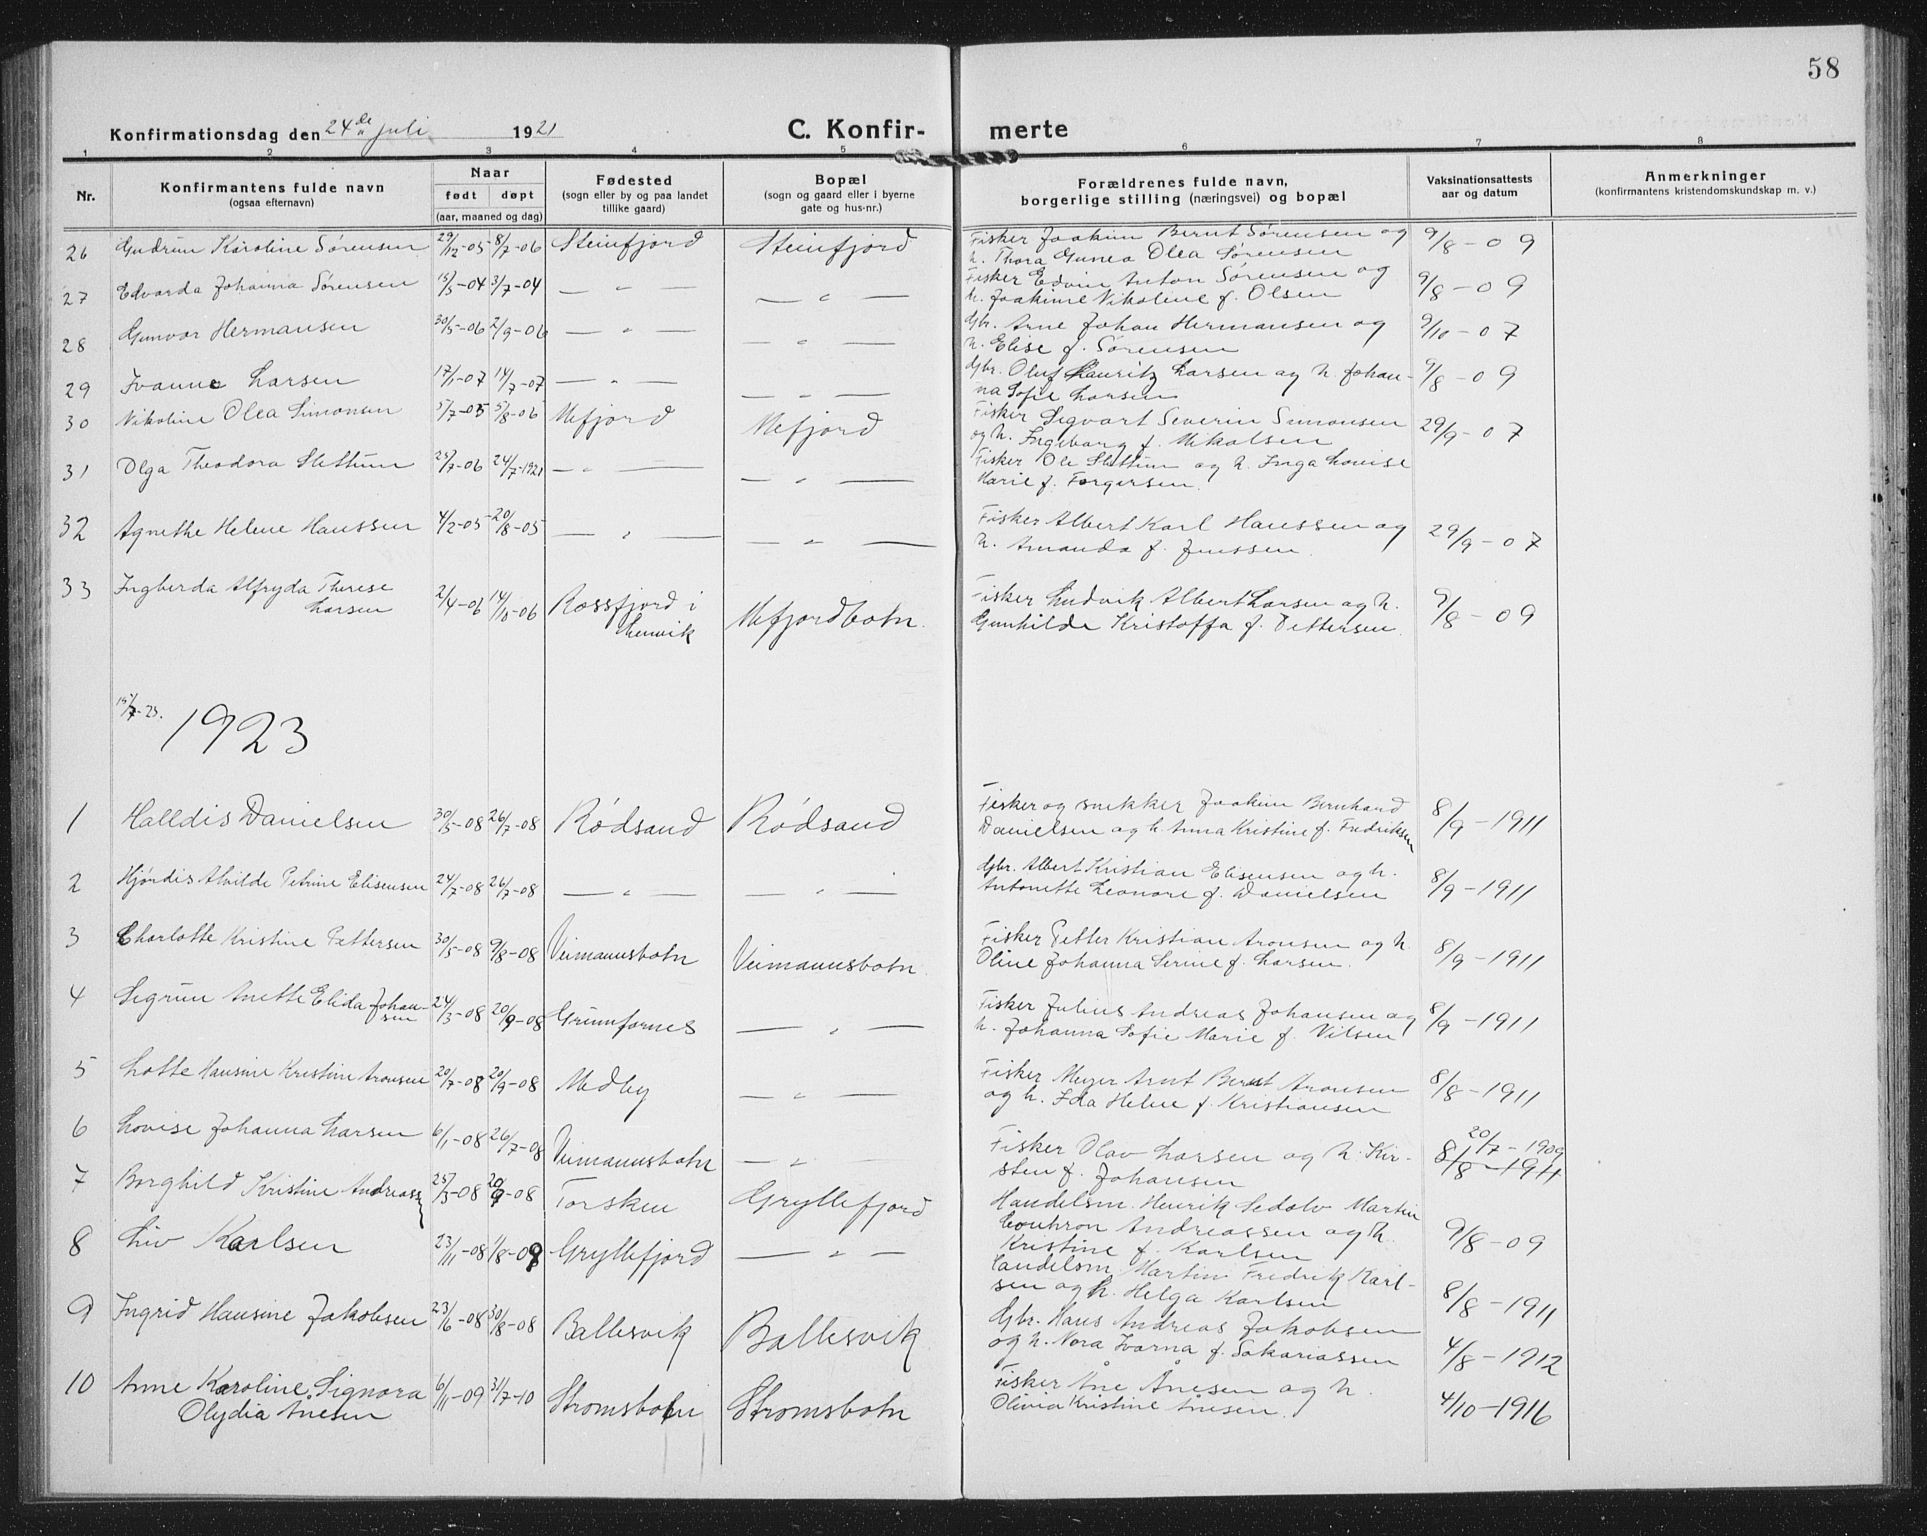 58
Konfirmationsdag den 24de juli 1921 C. Konfir- merte
1 2 3 4 5 6 7 8
Nr. Konfirmantens fulde navn (ogsaa efternavn) Naar født døpt (aar, maaned og dag) Fødested (sogn eller by og paa landet tillike gaard) Bopæl (sogn og gaard eller i byerne gate og hus-nr.) Forældrenes fulde navn, borgerlige stilling (næringsvei) og bopæl Vaksinationsattests aar og datum Anmerkninger (konfirmantens kristendomskundskap m. v.)
26 Gudrun Karoline Sørensen 29/12-05 8/7-06 Steinfjord Steinfjord Fisker Joakim Bernt Sørensen og 9/8-09
h. Thora Gunea Olea Sørensen
27 Edvarda Johanna Sørensen 15/5-04 3/7-04 — " — — " — Fisker Edvin Anton Sørensen og 9/8-09
h. Joakime Nikoline f. Olsen
28 Gunvor Hermansen 30/5-06 2/9-06 — " — — " — gbr. Arne Johan Hermansen og 9/10-07
h. Elise f. Sørensen
29 Ivanne Larsen 17/1-07 14/7-07 — " — — " — gbr. Oluf Lauritz Larsen og h. Johan- 9/8-09
na Sofie Larsen
30 Nikoline Olea Simonsen 5/7-05 5/8-06 Mefjord Mefjord Fisker Sigvart Severin Simonsen 29/9-07
og h. Ingeborg f. Mikalsen
31 Olga Theodora Slettum 25/7-06 24/7-1921 — " — — " — Fisker Ole Slettum og h. Inga Lovise
Marie f. Torgersen.
32 Agnethe Helene Hanssen 4/2-05 20/8-05 — " — — " — Fisker Albert Karl Hanssen og 29/9-07
h. Amanda f. Jenssen.
33 Ingberda Alfryda Therese 2/4-06 14/8-06 Rossfjord i Mefjordbotn. Fisker Ludvik Albert Larsen og h. 9/8-09
Larsen Lenvik Gunhilde Kristoffa f. Pettersen.
15/7-23. 1923
1 Halldis Danielsen 30/5-08 26/7-08 Rødsand Rødsand Fisker og snekker Joakim Bernhard 8/9-1911
Danielsen og h. Anna Kristine f. Fredriksen
2 Hjørdis Alvilde Petrine Elisensen 24/7-08 26/7-08 — " — — " — gbr. Albert Kristian Elisensen og h. 8/9-1911
Antonette Leonore f. Danielsen
3 Charlotte Kristine Pettersen 30/5-08 9/8-08 Veimannsbotn Veimannsbotn. Fisker Petter Kristian Aronsen og h. 8/9-1911
Oline Johanna Serine f. Larsen.
4 Sigrun Anette Elida Johan- 24/3-08 20/9-08 Grunnfarnes — " — Fisker Julius Andreas Johansen og 8/9-1911
sen h. Johanna Sofie Marie f. Nilsen
5 Lotte Hansine Kristine Aronsen 20/7-08 20/9-08 Medby — " — Fisker Meyer Arnt Bernt Aronsen 8/8-1911
og h. Ida Helene f. Kristiansen
6 Lovise Johanna Larsen 6/1-08 26/7-08 Veimannsbotn — " — Fisker Olav Larsen og h. Kir- 20/7-1909
sten f. Johansen 8/8-1911
7 Borghild Kristine Andreassen 25/3-08 20/9-08 Torsken Gryllefjord Handelsm. Henrik Sedolv Martin
Conhron Andreassen og h. 9/8-09
Kristine f. Karlsen
8 Liv Karlsen 23/11-08 1/8-09 Gryllefjord — " — Handelsm. Martin Fredrik Karl-
sen og h. Helga Karlsen 8/8-1911
9 Ingrid Hansine Jakobsen 23/6-08 30/8-08 Ballesvik Ballesvik Gbr. Hans Andreas Jakobsen
og h. Nora Ivarna f. Sakariassen 4/8-1912
10 Anne Karoline Signora 6/11-09 31/7-10 Stromsbotn Stromsbotn Fisker Åne Ånesen og h.
Olydia Anesen Olivia Kristine Ånesen. 4/10-1916